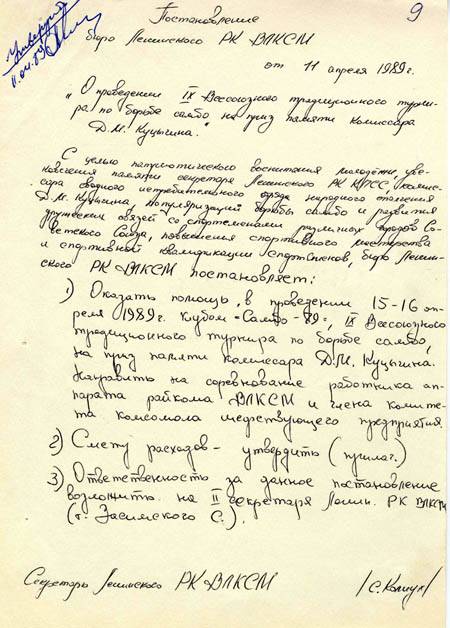 9
Утверждаю
11.04.89
Постановление
бюро Ленинского РК ВЛКСМ
от 11 апреля 1989г.
„О проведении IX Всесоюзного традиционного турни-
ра по борьбе самбо на приз памяти комиссара
Д.М. Куцыгина.
С целью патриотического воспитания молодёжи, уве-
ковечения памяти секретаря Ленинского РК КПСС, комис-
сара сводного истребительного отряда народного ополчения
Д.М. Куцыгина, популяризации борьбы самбо и развития
дружеских связей со спортсменами различных городов Со-
ветского Союза, повышения спортивного мастерства
и спортивной квалификации спортсменов, бюро Ленин-
ского РК ВЛКСМ постановляет:
1) Оказать помощь, в проведении 15-16 ап-
реля 1989г. Кубом "Самбо-89", IX Всесоюзного
традиционного турнира по борьбе самбо,
на приз памяти комиссара Д.М. Куцыгина.
Направить на соревнование работника ап-
парата райкома ВЛКСМ и члена комите-
та комсомола шефствующего предприятия.
2) Смету расходов - утвердить (прилаг.)
3) Ответственность за данное постановление
возложить на II секретаря Ленин. РК ВЛКСМ
(т. Засимского С.).
Секретарь Ленинского РК ВЛКСМ /С. /